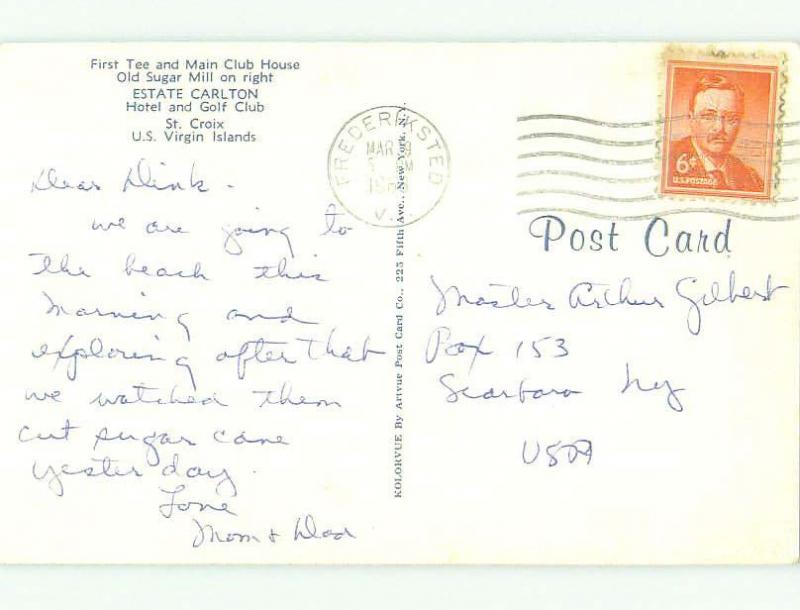 First Tee and Main Club House
Old Sugar Mill on right
ESTATE CARLTON
Hotel and Golf Club
St. Croix
U.S. Virgin Islands
Dear Dink.
we are going to
the beach this
morning and
exploring after that
we watched them
cut sugar cane
yesterday.
Love
Mom & Dad
KOLORVUE By Artvue Post Card Co., 225 Fifth Ave., New York, N.Y.
FREDERIKSTED
MAR 9
PM
V.I.
6¢
U.S. POSTAGE
Post Card
Master Arthur Gilbert
Box 153
Scarboro NY
USA